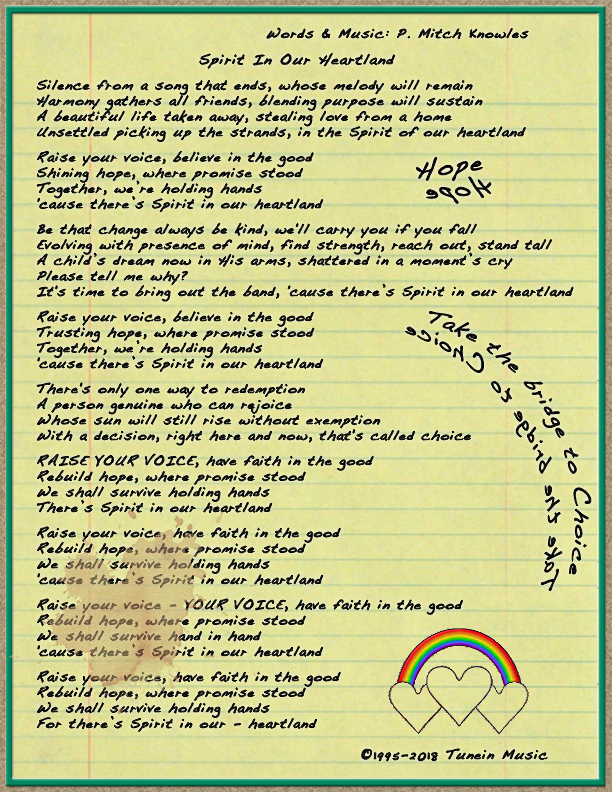 Words & Music: P. Mitch Knowles
Spirit In Our Heartland
Silence from a song that ends, whose melody will remain
Harmony gathers all friends, blending purpose will sustain
A beautiful life taken away, stealing love from a home
Unsettled picking up the strands, in the Spirit of our heartland
Raise your voice, believe in the good
Shining hope, where promise stood
Together, we're holding hands
'cause there's Spirit in our heartland
Hope
Hope
Be that change always be kind, we'll carry you if you fall
Evolving with presence of mind, find strength, reach out, stand tall
A child's dream now in His arms, shattered in a moment's cry
Please tell me why?
It's time to bring out the band, 'cause there's Spirit in our heartland
Raise your voice, believe in the good
Trusting hope, where promise stood
Together, we're holding hands
'cause there's Spirit in our heartland
Take the bridge to Choice
Take the bridge to Choice
There's only one way to redemption
A person genuine who can rejoice
Whose sun will still rise without exemption
With a decision, right here and now, that's called choice
RAISE YOUR VOICE, have faith in the good
Rebuild hope, where promise stood
We shall survive holding hands
There's Spirit in our heartland
Raise your voice, have faith in the good
Rebuild hope, where promise stood
We shall survive holding hands
'cause there's Spirit in our heartland
Raise your voice - YOUR VOICE, have faith in the good
Rebuild hope, where promise stood
We shall survive hand in hand
'cause there's Spirit in our heartland
Raise your voice, have faith in the good
Rebuild hope, where promise stood
We shall survive holding hands
For there's Spirit in our - heartland
©1995-2018 Tunein Music